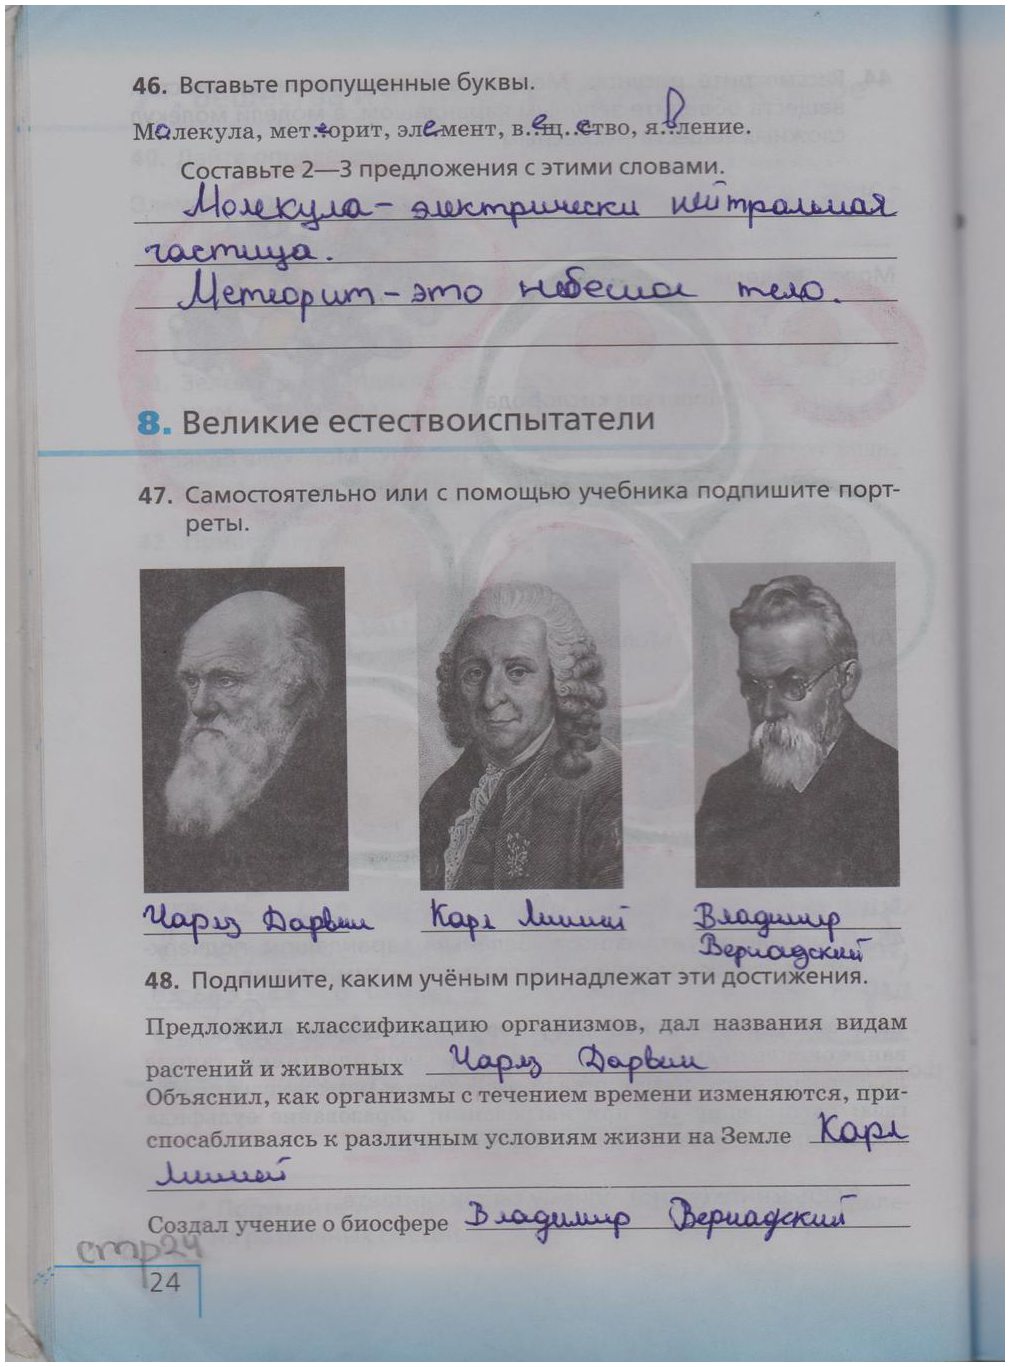 46. Вставьте пропущенные буквы.
Молекула, метеорит, элемент, в..ещ..ество, я..вление.
Составьте 2—3 предложения с этими словами.
Молекула – электрически нейтральная
частица.
Метеорит – это небесное тело.
8. Великие естествоиспытатели
47. Самостоятельно или с помощью учебника подпишите порт-
реты.
Чарлз Дарвин Карл Линней Владимир
Вернадский
48. Подпишите, каким учёным принадлежат эти достижения.
Предложил классификацию организмов, дал названия видам
растений и животных Чарлз Дарвин
Объяснил, как организмы с течением времени изменяются, при-
спосабливаясь к различным условиям жизни на Земле Карл
Линней
Создал учение о биосфере Владимир Вернадский
стр24
24